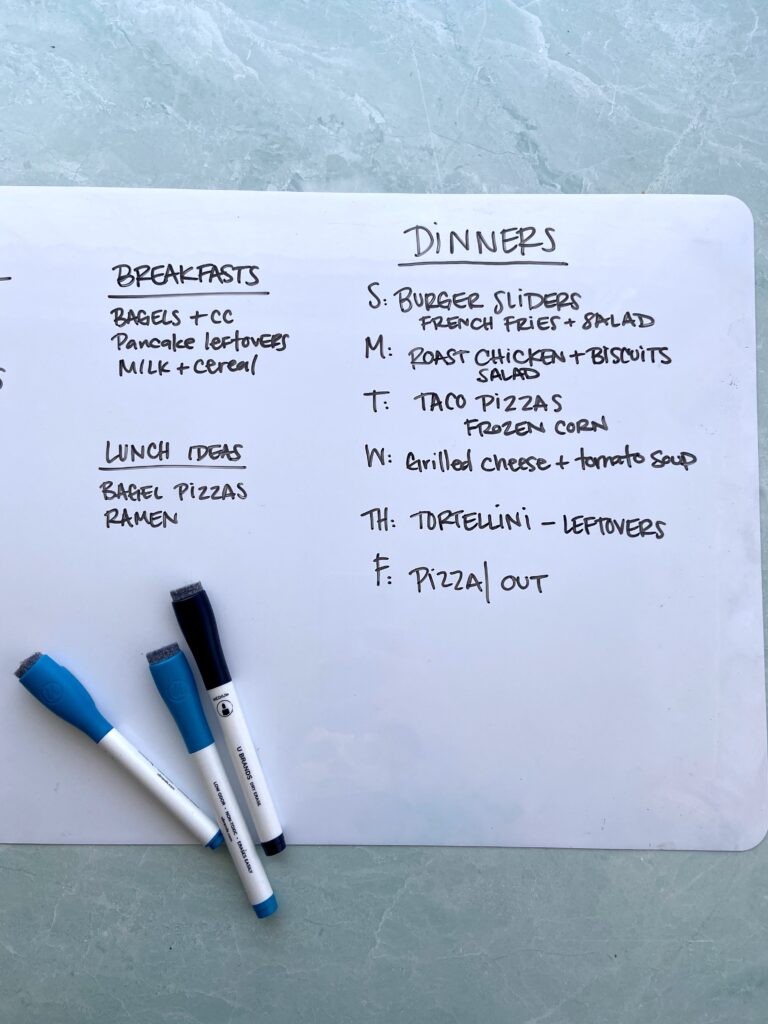 BREAKFASTS
BAGELS + CC
Pancake leftovers
MILK + cereal
LUNCH IDEAS
BAGEL PIZZAS
RAMEN
DINNERS
S: BURGER SLIDERS
FRENCH FRIES + SALAD
M: ROAST CHICKEN + BISCUITS
SALAD
T: TACO PIZZAS
FROZEN CORN
W: Grilled cheese + tomato soup
TH: TORTELLINI - LEFTOVERS
F: PIZZA/ OUT
MEDIUM
U BRANDS DRY ERASE
LOW ODOR • NON-TOXIC • ERASES EASILY